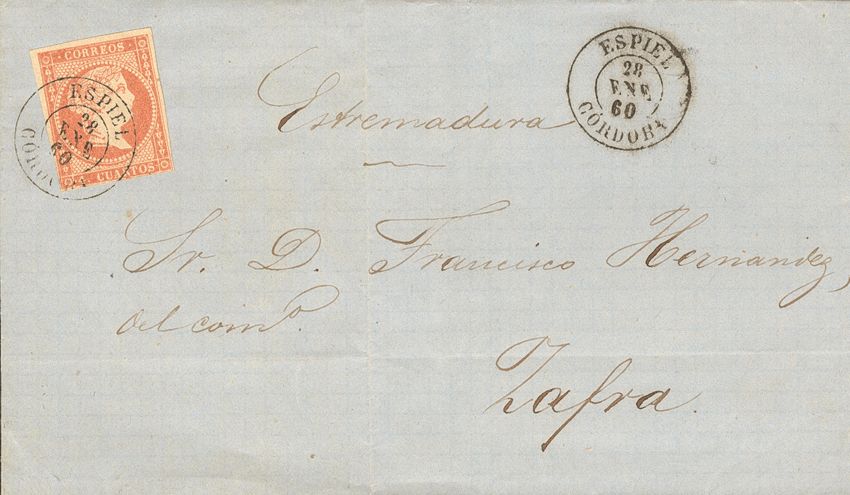 CORREOS
CUARTOS
ESPIEL
28
ENE
60
CORDOBA
ESPIEL
28
ENE
60
CORDOBA
Estremadura
Sr. D. Francisco Hernandez,
del comº.
Zafra.